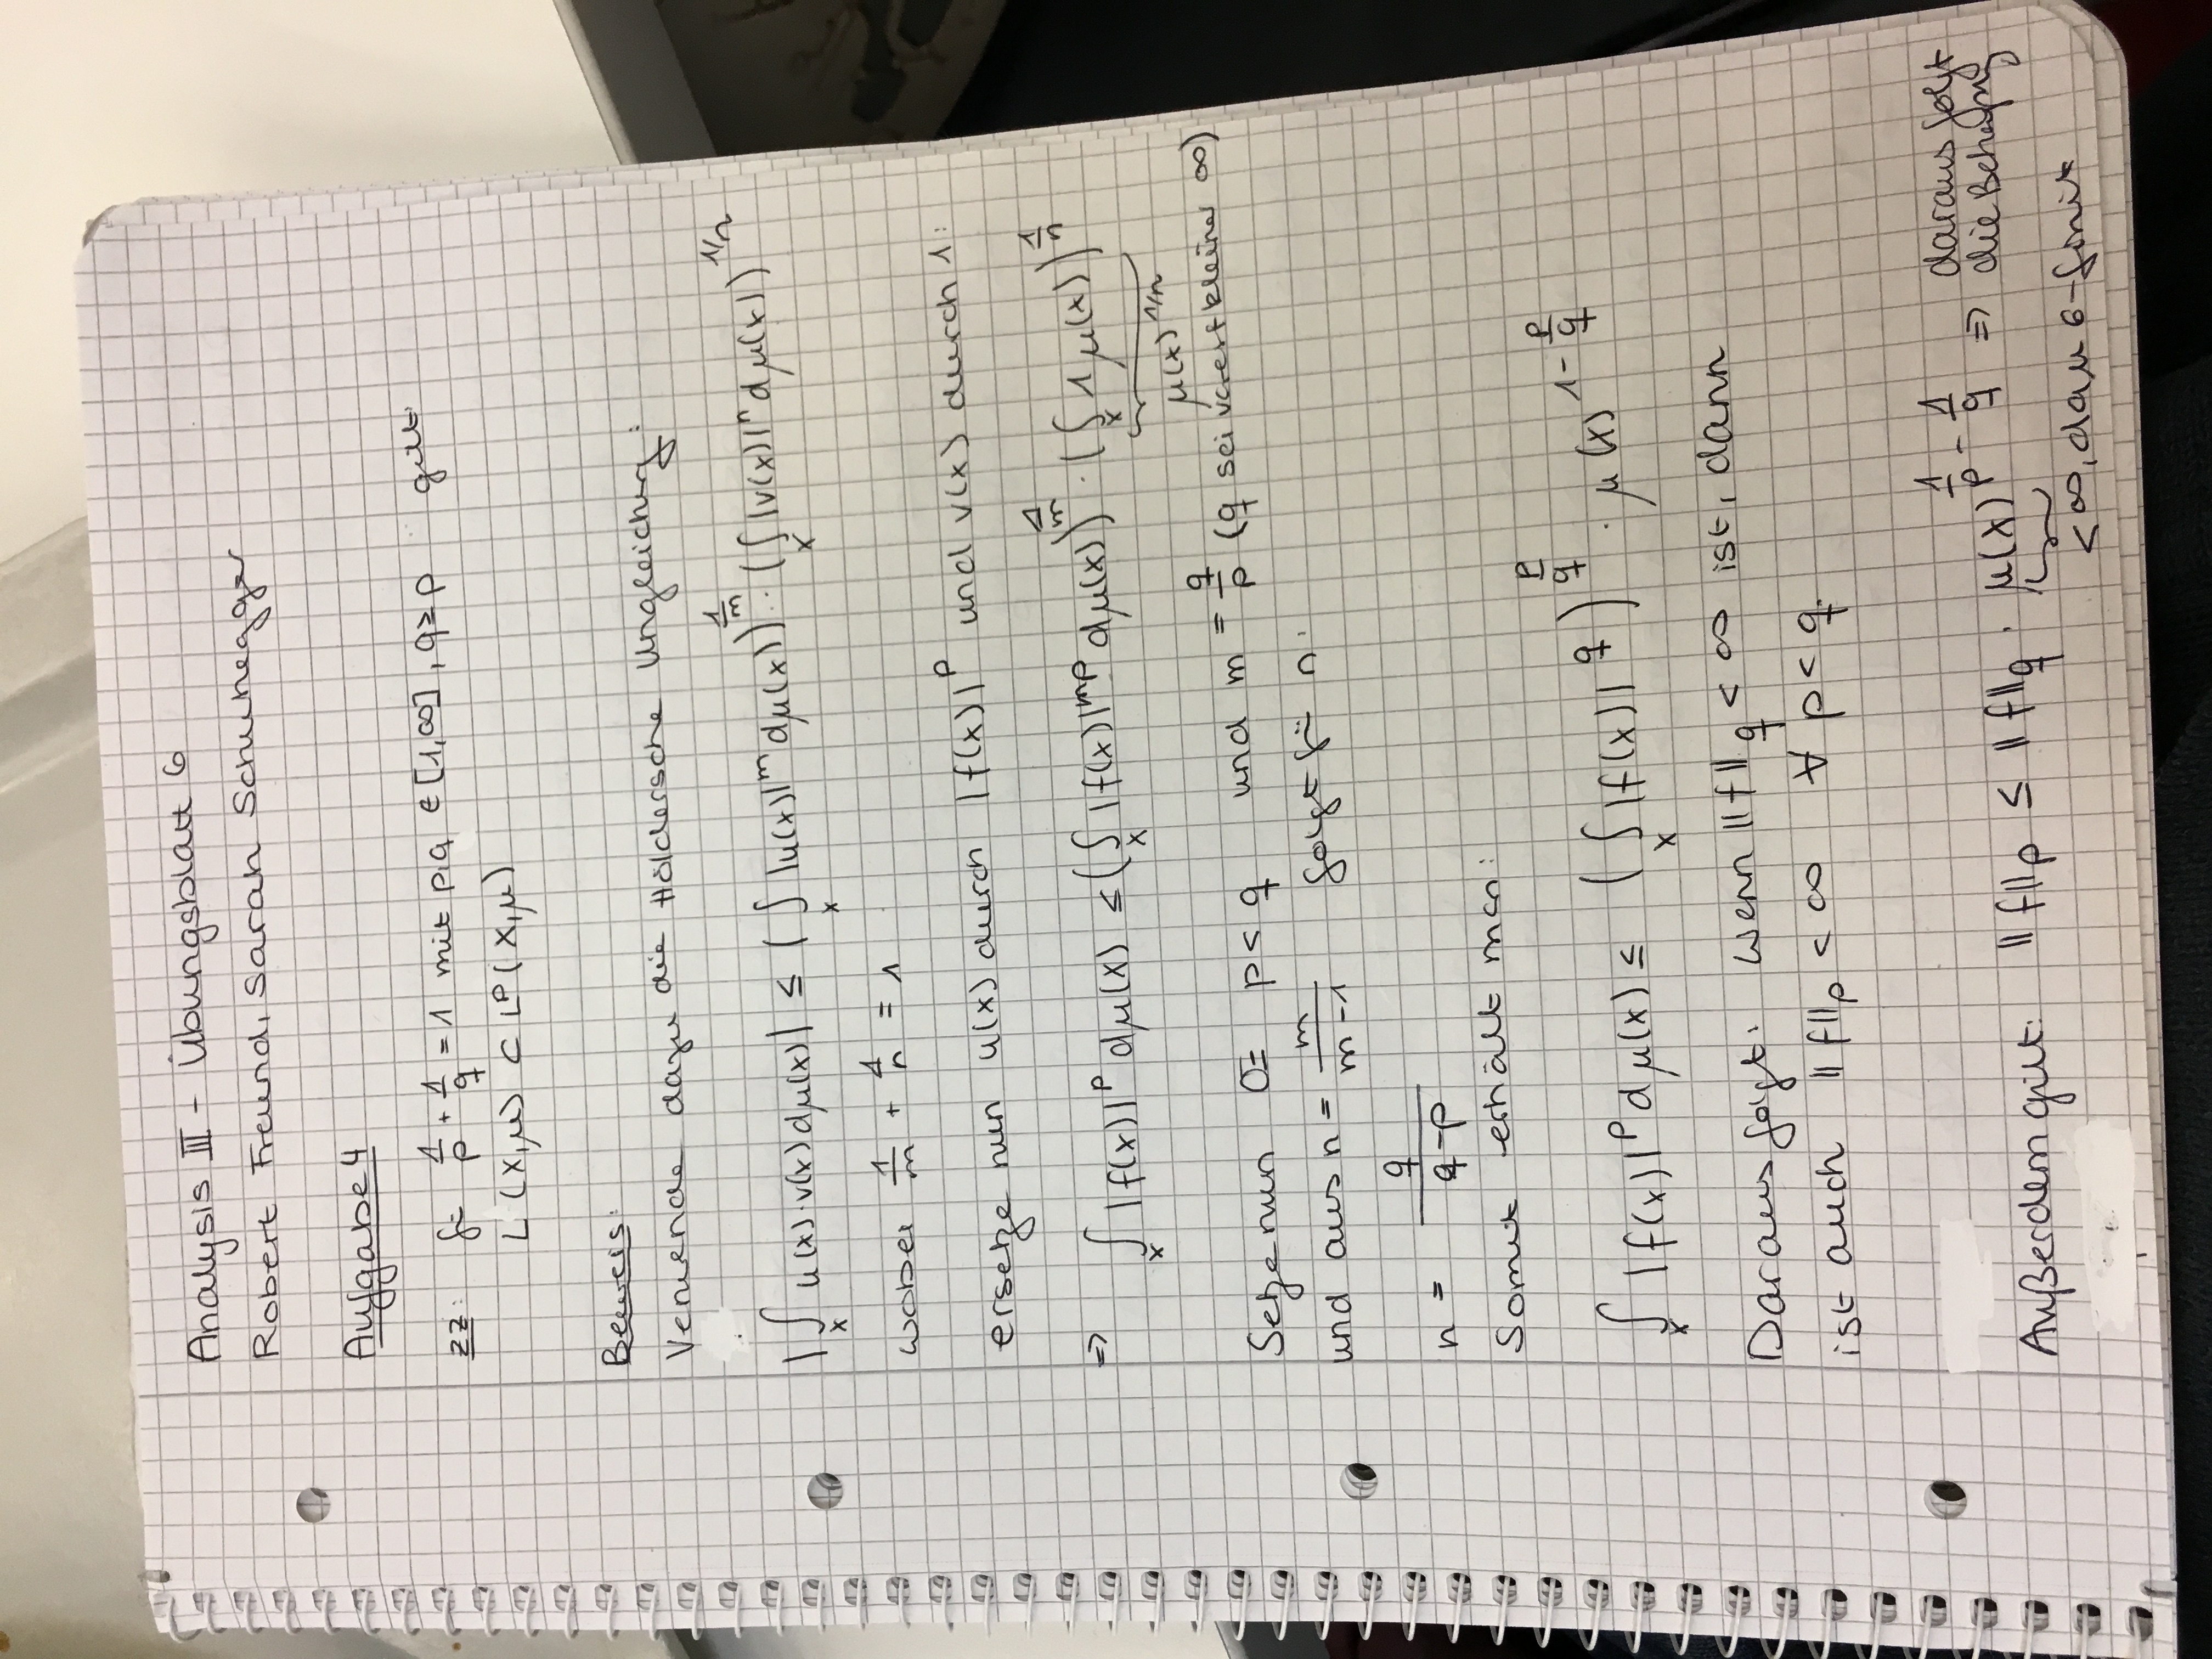 Analysis III - Übungsblatt 6
Robert Freund, Sarah Schuhegger
Aufgabe 4
zz: für 1/p + 1/q = 1 mit p,q ∈ [1,∞], q ≥ p gilt
L (X,μ) ⊂ L^p (X,μ)
Beweis:
Verwende dazu die Höldersche Ungleichung:
|∫_X u(x)·v(x) dμ(x)| ≤ (∫_X |u(x)|^m dμ(x))^{1/m} · (∫_X |v(x)|^n dμ(x))^{1/n}
wobei 1/m + 1/n = 1
ersetze nun u(x) durch |f(x)|^p und v(x) durch 1:
=> ∫_X |f(x)|^p dμ(x) ≤ (∫_X |f(x)|^{mp} dμ(x))^{1/m} · (∫_X 1 μ(x))^{1/n}
μ(x)^{1/n}
Setze nun p < q und m = q/p (q sei vorerst kleiner ∞)
und aus n = m/(m-1) folgt für n:
n = q/(q-p)
Somit erhält man:
∫_X |f(x)|^p dμ(x) ≤ (∫_X |f(x)|^q)^{p/q} · μ(x)^{1-p/q}
Daraus folgt: Wenn ||f||_q < ∞ ist, dann
ist auch ||f||_p < ∞ ∀ p < q.
Außerdem gilt: ||f||_p ≤ ||f||_q · μ(X)^{1/p - 1/q} => daraus folgt
die Behauptung
< ∞, da μ σ-finit